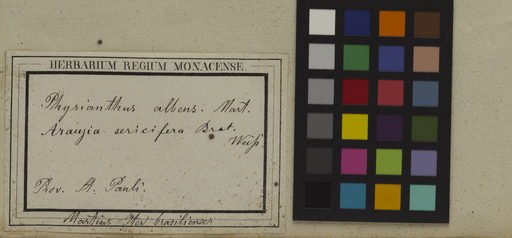 HERBARIUM REGIUM MONACENSE.
Physianthus albens. Mart.
Araujia sericifera Brot.
Weiss.
Prov. St. Pauli.
Martius Iter brasiliense